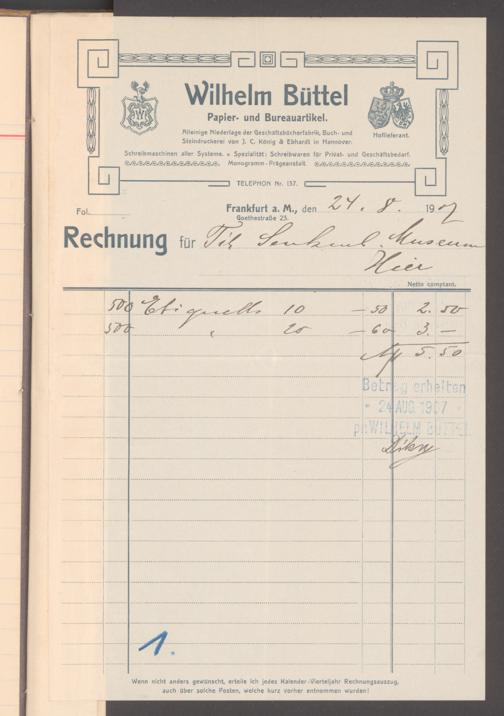 Wilhelm Büttel
Papier- und Bureauartikel.
Alleinige Niederlage der Geschäftsbücherfabrik, Buch- und
Steindruckerei von J. C. König & Ebhardt in Hannover.
Hoflieferant.
Schreibmaschinen aller Systeme. • Spezialität: Schreibwaren für Privat- und Geschäftsbedarf.
Monogramm-Prägeanstalt
TELEPHON Nr. 137.
Fol.
Frankfurt a. M., den 24. 8. 1907
Goethestraße 23.
Rechnung für Tit. Senkenb. Museum
Hier
Netto comptant.
500 Etiquetts 10 —50 2.50
500 " 20 —60 3.—
5.50
Betrag erhalten
24 AUG. 1907
pr. WILHELM BÜTTEL
1.
Wenn nicht anders gewünscht, erteile ich jedes Kalender-Vierteljahr Rechnungsauszug,
auch über solche Posten, welche kurz vorher entnommen wurden!